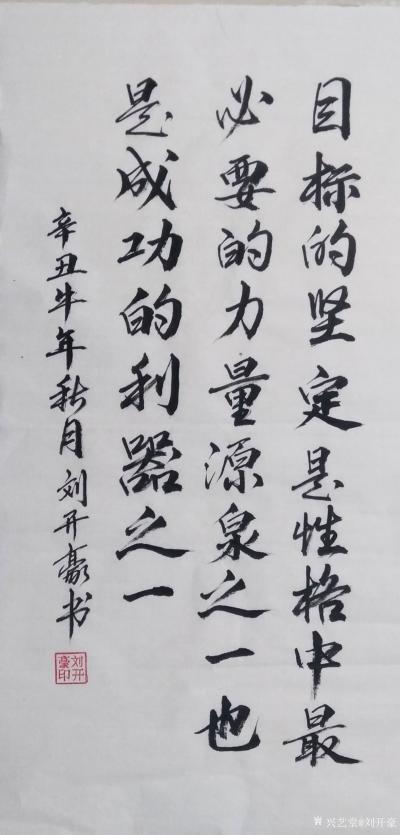 目标的坚定是性格中最
必要的力量源泉之一也
是成功的利器之一
辛丑牛年秋月刘开豪书
刘开豪印
兴艺堂@刘开豪